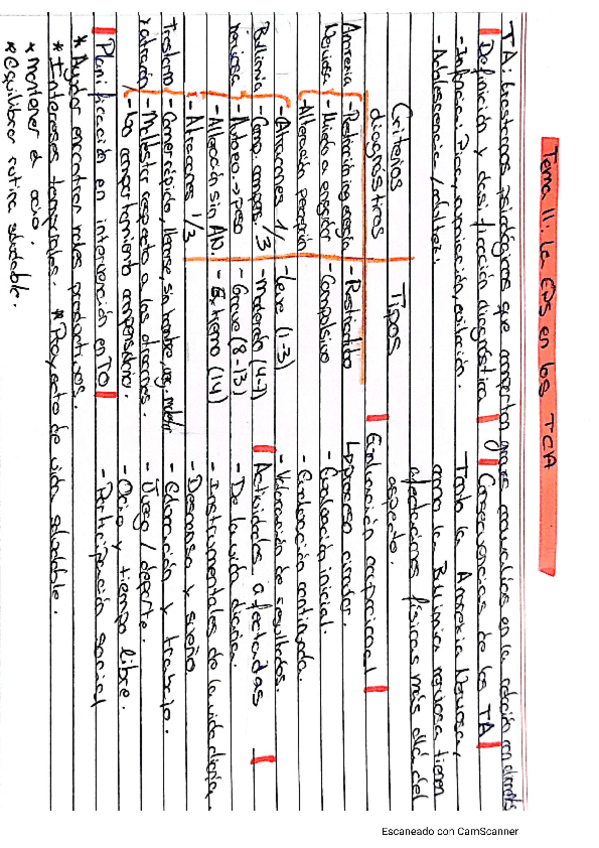 Tema 11: La EPS en los TCA
TA: trastornos psicológicos que comportan graves anomalías en la relación con
Definición y clasificación diagnóstica
- Infancia: Pica, rumiación, evitación.
- Adolescencia/adultez:
Consecuencias de los TA
Tanto la Anorexia Nerviosa,
como la Bulimia nerviosa tienen
afectaciones físicas más allá del
aspecto.
Criterios
diagnósticos
Tipos
Anorexia
Nerviosa
- Restricción ing. energía
- Miedo a engordar
- Alteración percepción
- Restrictivo
- Compulsivo
Bulimia
nerviosa
- Atracones 1/
- Comp. compens. 1/3
- Autoev. → peso
- Alteración sin AN.
- Leve (1-3)
- Moderado (4-7)
- Grave (8-13)
- Extremo (14)
Trastorno
- Atracones 1/3
- Comer rápido, llenarse, sin hambre,
- Malestar respecto a los atracones.
- No comportamiento compensatorio.
Evaluación ocupacional
Lo proceso circular.
- Evaluación inicial.
- Evaluación continuada.
- Valoración de resultados.
Actividades afectadas
- De la vida diaria.
- Instrumentales de la vida diaria
- Descanso y sueño
- Educación y trabajo.
- Juego / deporte.
- Ocio y tiempo libre.
- Participación social
Planificación en intervención en TO
* Ayudar encontrar roles productivos.
* Intereses temporales.
* Proyecto de vida saludable.
* mantener el ocio.
* equilibrar rutina saludable.
Escaneado con CamScanner